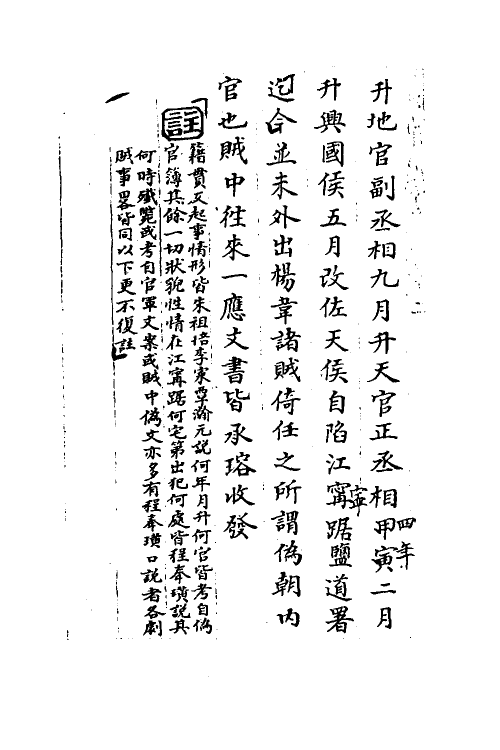 升地官副丞相九月升天官正丞相甲寅四年二月
升興國侯五月改佐天侯自陷江寧踞鹽道署
迄今並未外出楊韋諸賊倚任之所謂偽朝內
官也賊中往來一應文書皆承瑢收發
註
籍貫及起事情形皆朱祖培李家覃瀚元說何年月升何官皆考自偽
官簿其餘一切狀貌性情在江寧踞何宅第出犯何處皆程奉璜說其
何時殲斃或考自官軍文案或賊中偽文亦多有程奉璜口說者各劇
賊事畧皆同以下更不復註